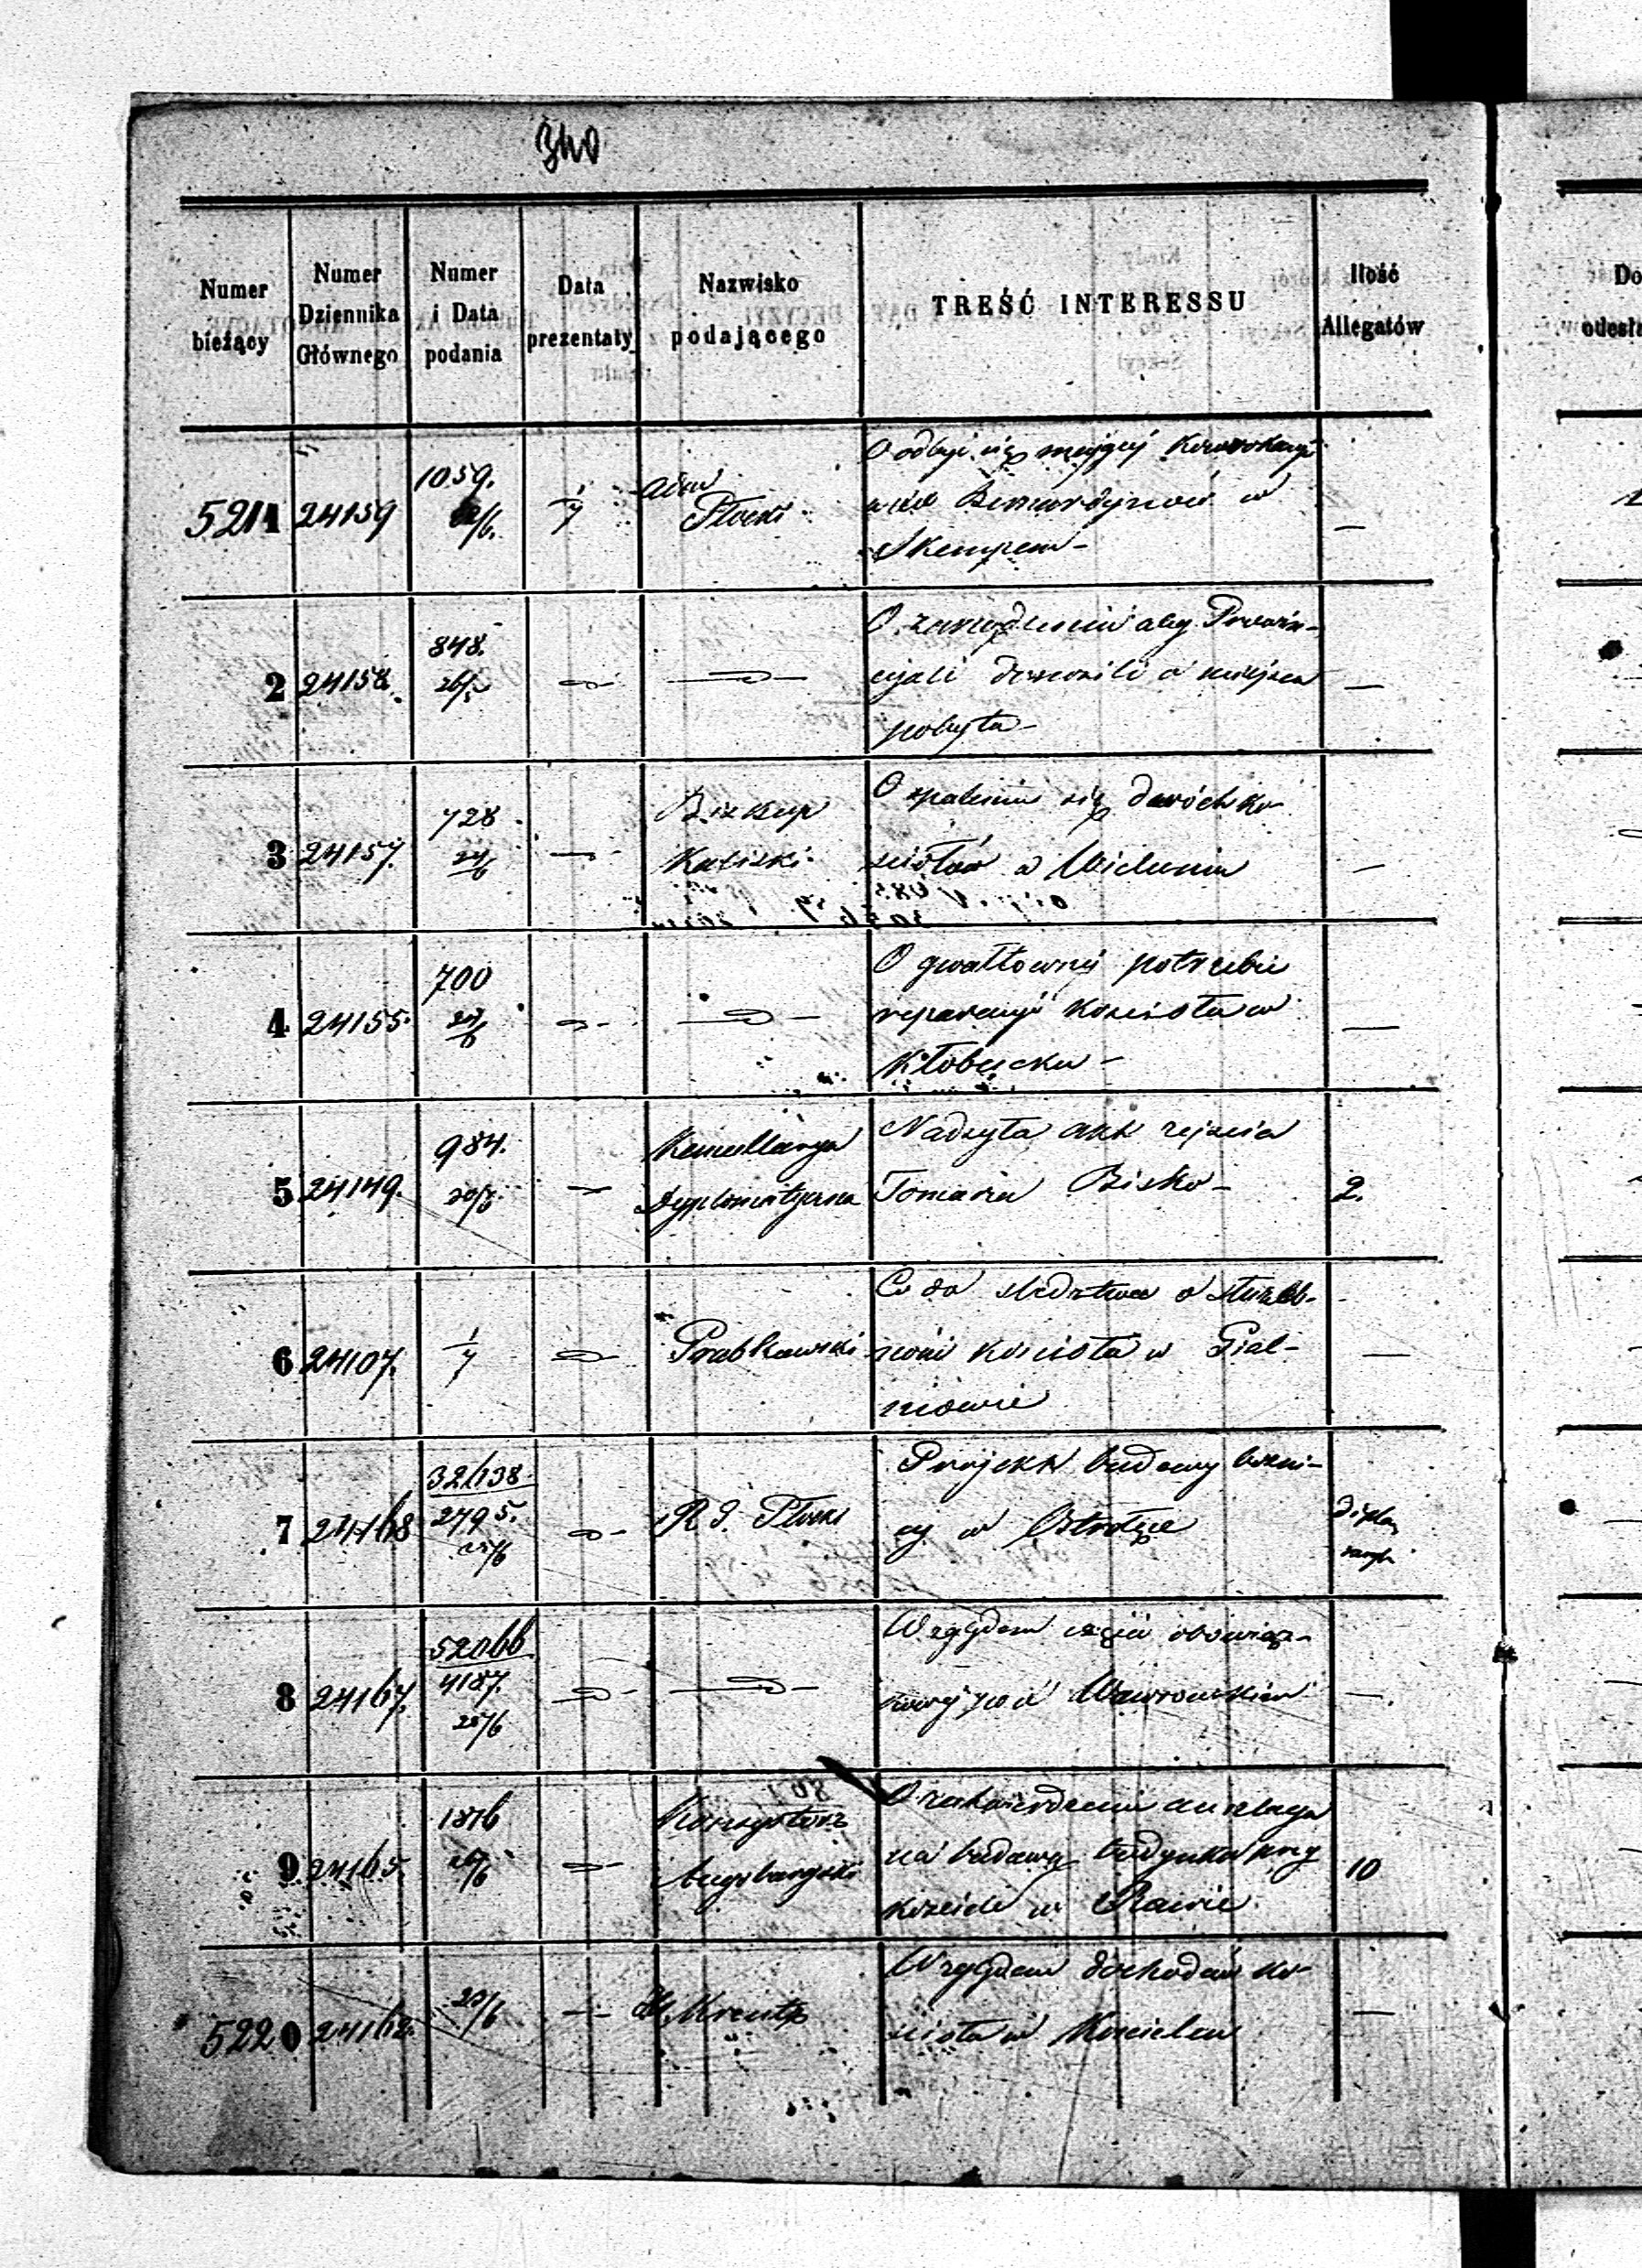 340
Numer bieżący
Numer Dziennika Głównego
Numer i Data podania
Data prezentaty
Nazwisko podającego
TREŚĆ INTERESSU
Ilość Allegatów
5211 24159 1059. /6. 1/7 Płocki
O odbyć się mającej
Bernardynów w
Skempem -
2 24158. 848. 26/ 
O zarządzeniu aby Prowin-
cyali donosili o miejscu
pobytu -
3 24157. 728. 24/6 Biskup Kaliski
O spaleniu się dwóch ko-
ściołów w Wieluniu
4 24155. 700 27/6
O gwałtownej potrzebie
reparacyi kościoła w
Kłobucku -
5 24149. 984. 20/ Kancellarya Dyplomatyczna
Nadsyła akt zejścia
Tomasza Bisko - 2.
6 24107. 1/7
Co do śledztwa o
kościoła w Giel-
niowie
7 24168 32638 2795. /6 R. G. Płocki
Projekt budowy bożni-
cy w Ostrołęce
8 24167. 52066 4187. 25/6
Względem
9 24165. 1876 26/6 Konsystorz Augsburgski
O zatwierdzenie anszlagu
na budowę budynku przy
kościele w Rawie 10
5220 24162. 20/6 Kreutz
Względem dochodów ko-
ścioła w Kościelcu